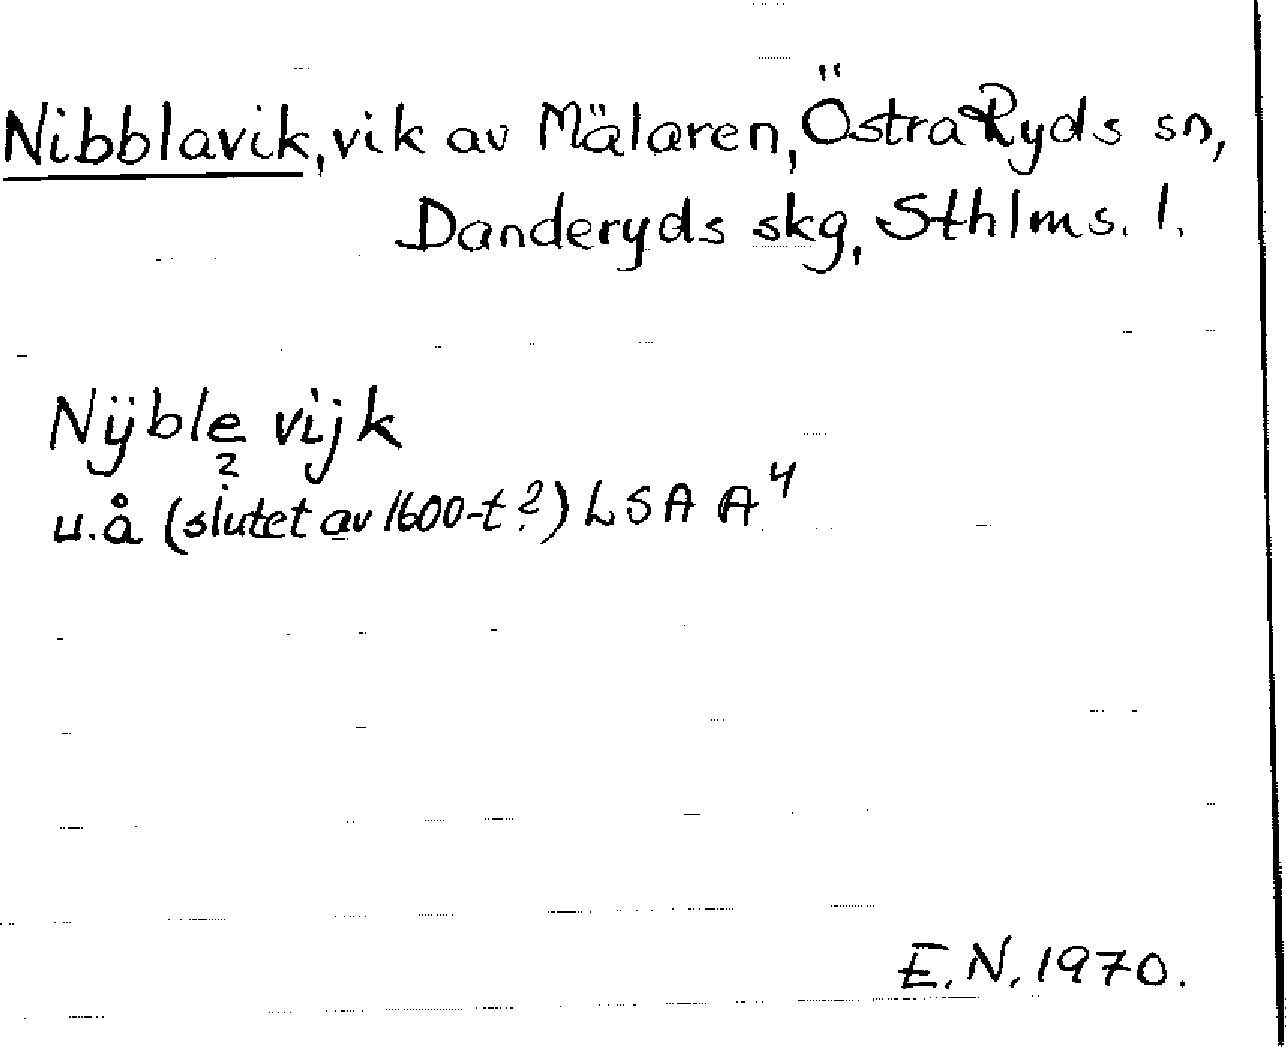 Nibblavik, vik av Mälaren, Östra Ryds sn,
Danderyds skg, Sthlms. l.
Nÿble vijk
?
u.å (slutet av 1600-t?) LSA A4
E.N. 1970.